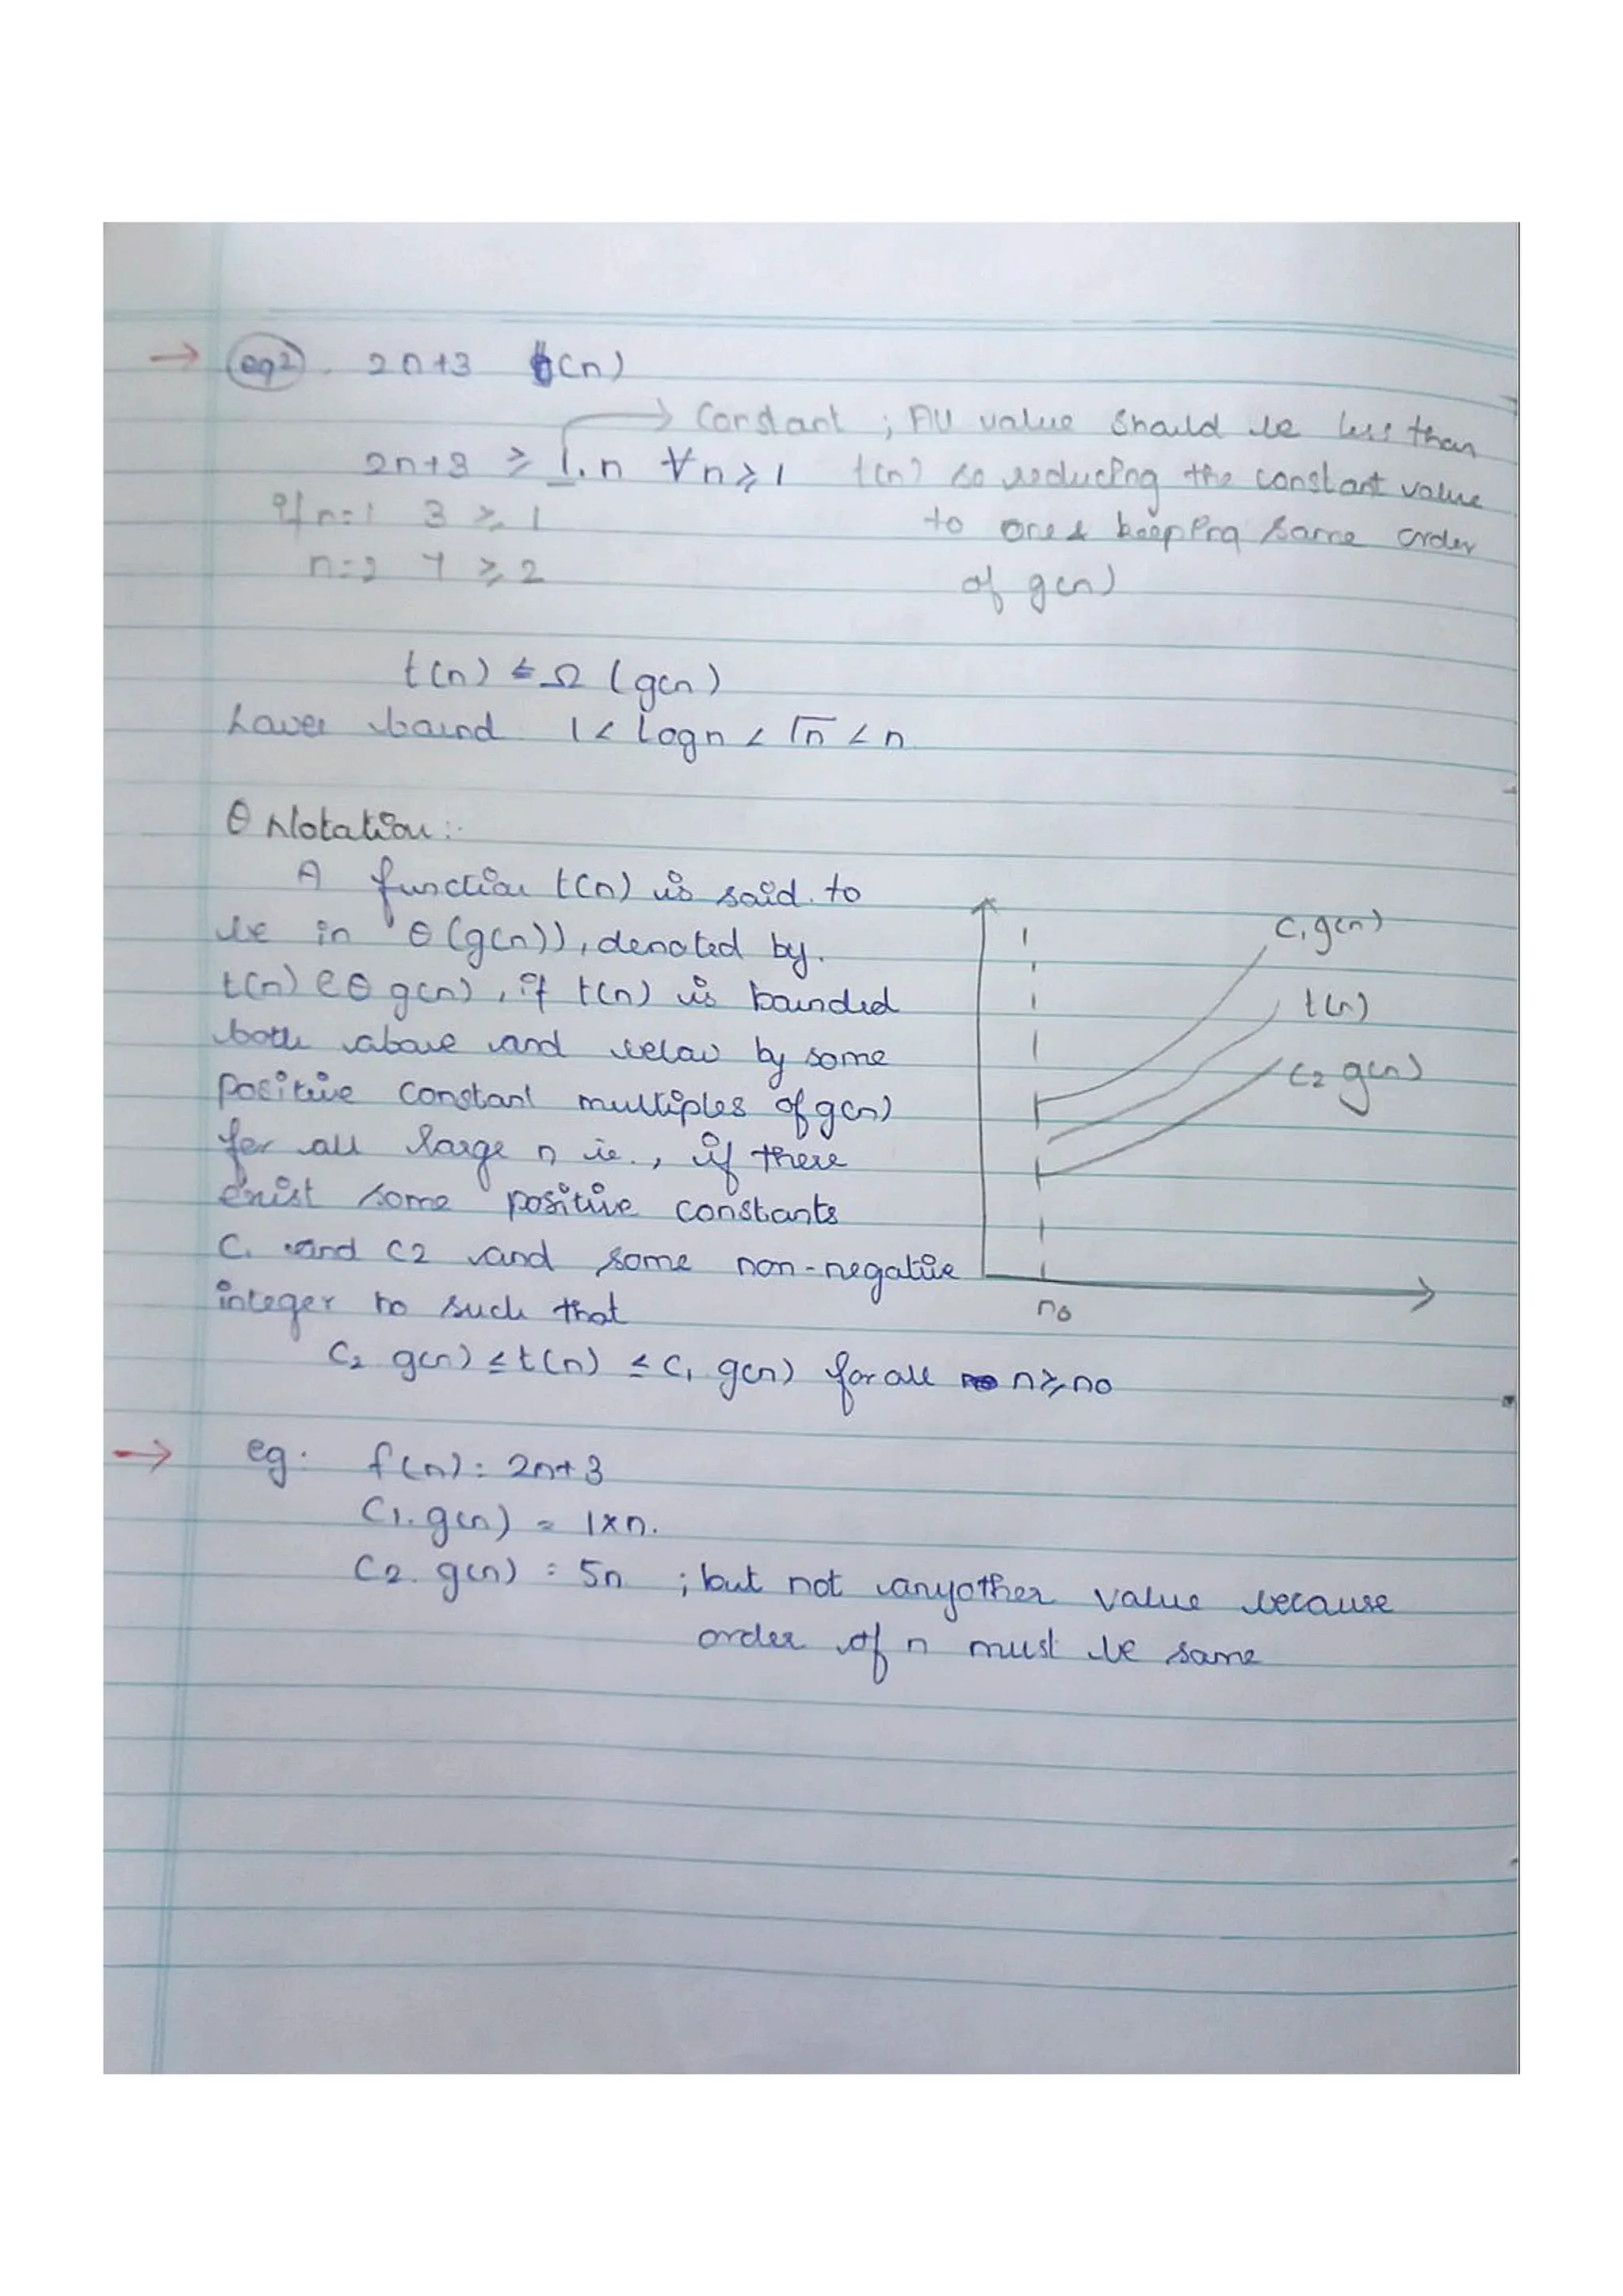 → eg2. 2n+3 t(n)
→ Constant ; All value should be less than
2n+3 ≥ 1.n ∀n≥1 t(n) so reducing the constant value
if n=1 3 ≥ 1 to one & keeping same order
n=2 7 ≥ 2 of g(n)
t(n) ≤ Ω (g(n)
Lower bound 1 < log n < √n < n
θ Notation :-
A function t(n) is said to
be in θ(g(n)), denoted by.
t(n) ∈ θ g(n), if t(n) is bounded
both above and below by some
positive constant multiples of g(n)
for all large n ie., if there
exist some positive constants
C1 and C2 and some non-negative
integer no such that
C2 g(n) ≤ t(n) ≤ C1 g(n) for all n ≥ no
C1 g(n)
t(n)
C2 g(n)
n0
→ eg. f(n) = 2n+3
C1. g(n) = 1×n.
C2. g(n) = 5n ; but not anyother value because
order of n must be same